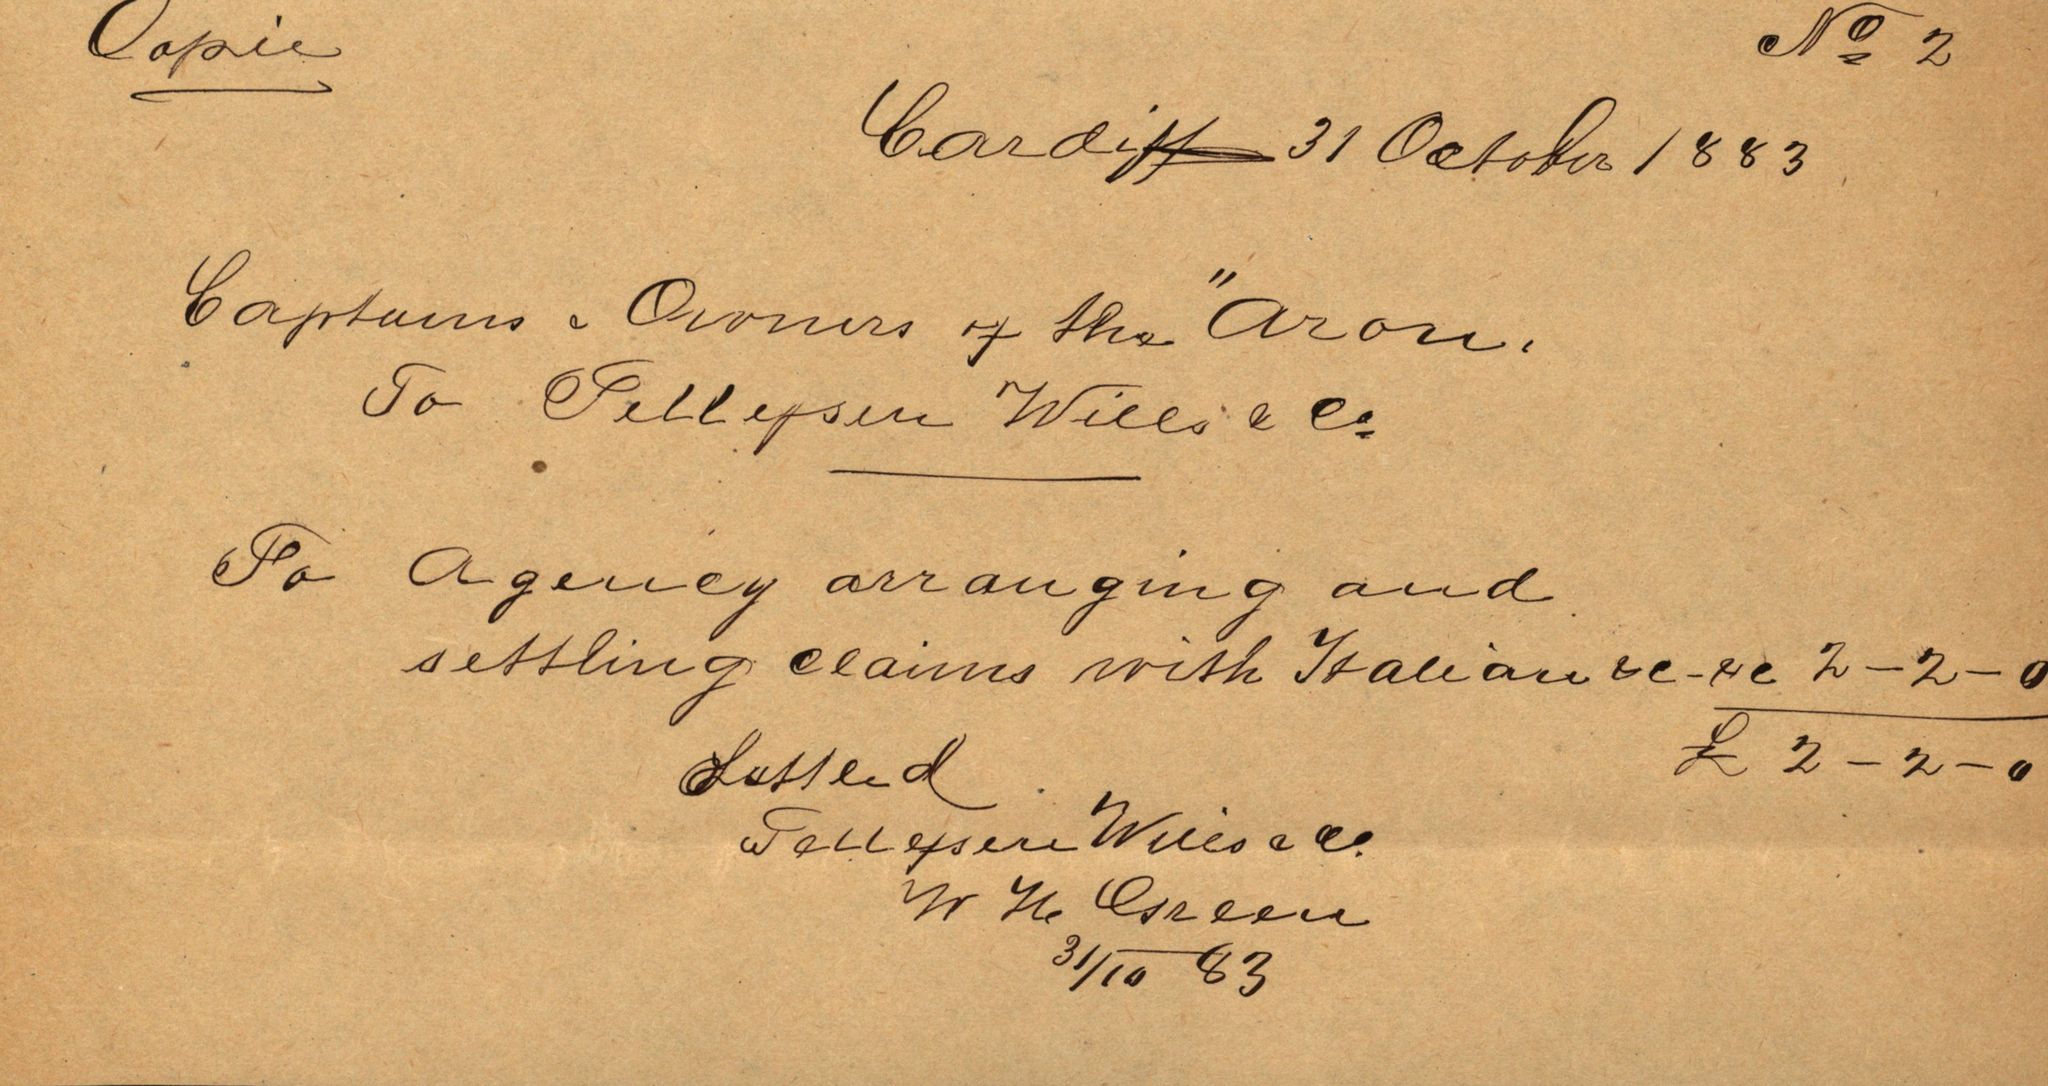 Copie
No 2
Cardiff 31 October 1883
Captains & Owners of the "Aron.
To Tellefsen Wills & Co
To Agency arranging and
settling claims with Italian &c - &c 2 - 2 - 0
£ 2 - 2 - 0
Settled
Tellefsen Wills & Co.
W H Green
31/10 83